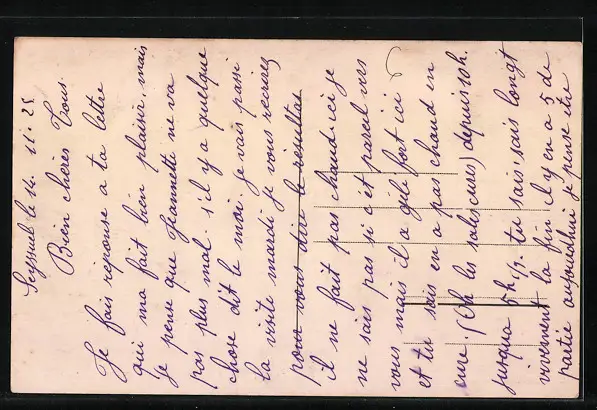 Seyssuel le 14. 11. 25
Bien chères Tous.
Je fais réponse a ta lettre
qui ma fait bien plaisir, mais
je pense que Jeannette ne va
pas plus mal. s'il y a quelque
chose dit le moi je vais passé
la visite mardi je vous recrirez
pour vous dire le résultat
il ne fait pas chaud ici je
ne sais pas si c'et pareil vers
vous mais il a gelé fort ici
et tu sais en a pas chaud en
cure. (Oh les sales cures) depuis 10h.
jusqua 5h 1/2. tu sais sais longt
vivement la fin il y en a 5 de
partie aujourdhui je pense etre